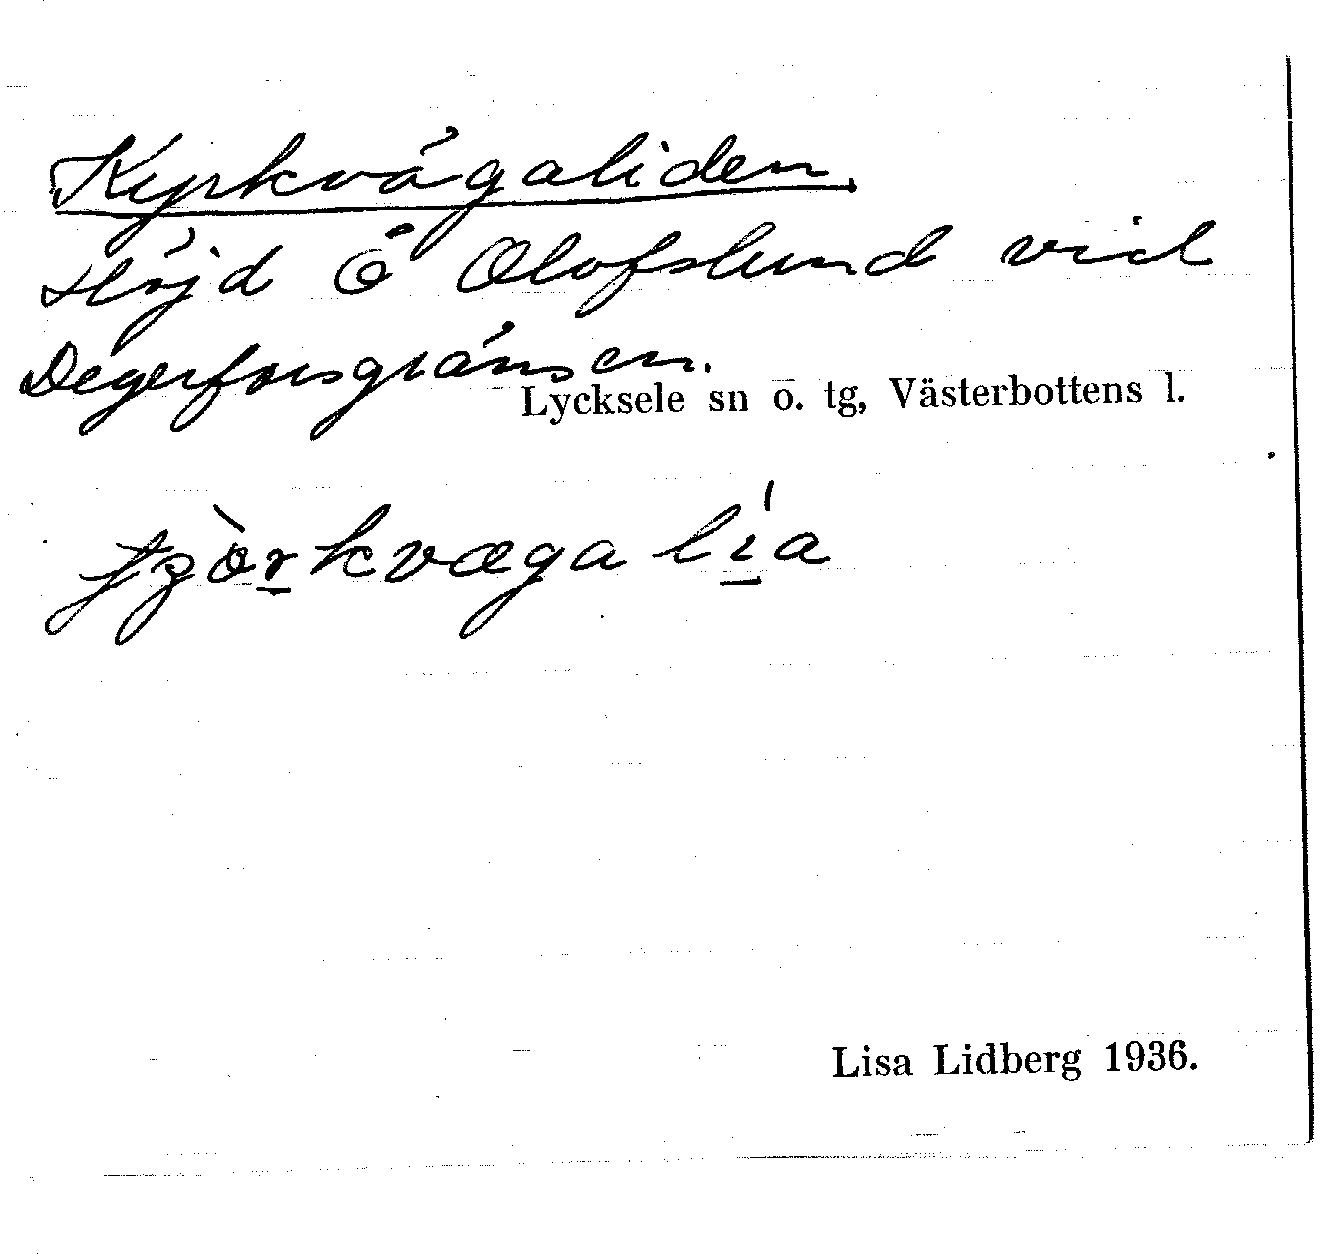 Kyrkvägaliden.
Höjd Ö Olofslund vid
Degerforsgränsen.
Lycksele sn ö. tg, Västerbottens l.
Lisa Lidberg 1936.